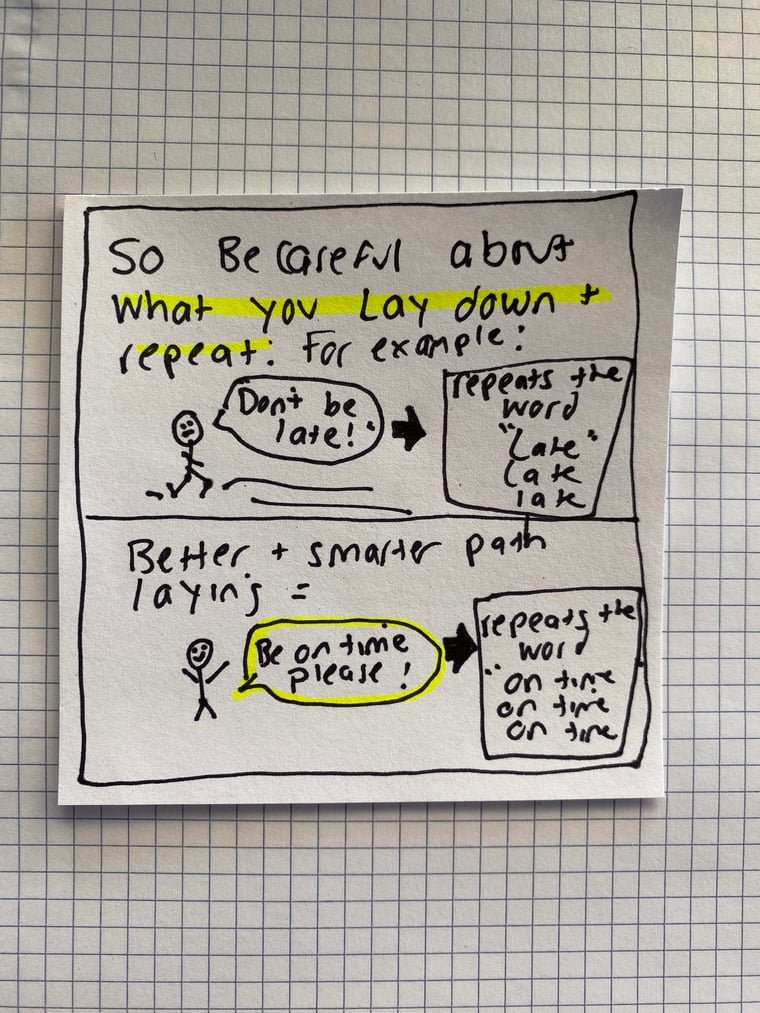 So Be careful about
what you lay down +
repeat: For example:
Don't be
late!"
repeats the
word
"Late"
Late
late
Better + smarter path
laying =
Be on time
please!
repeats the
word
"on time
on time
on time